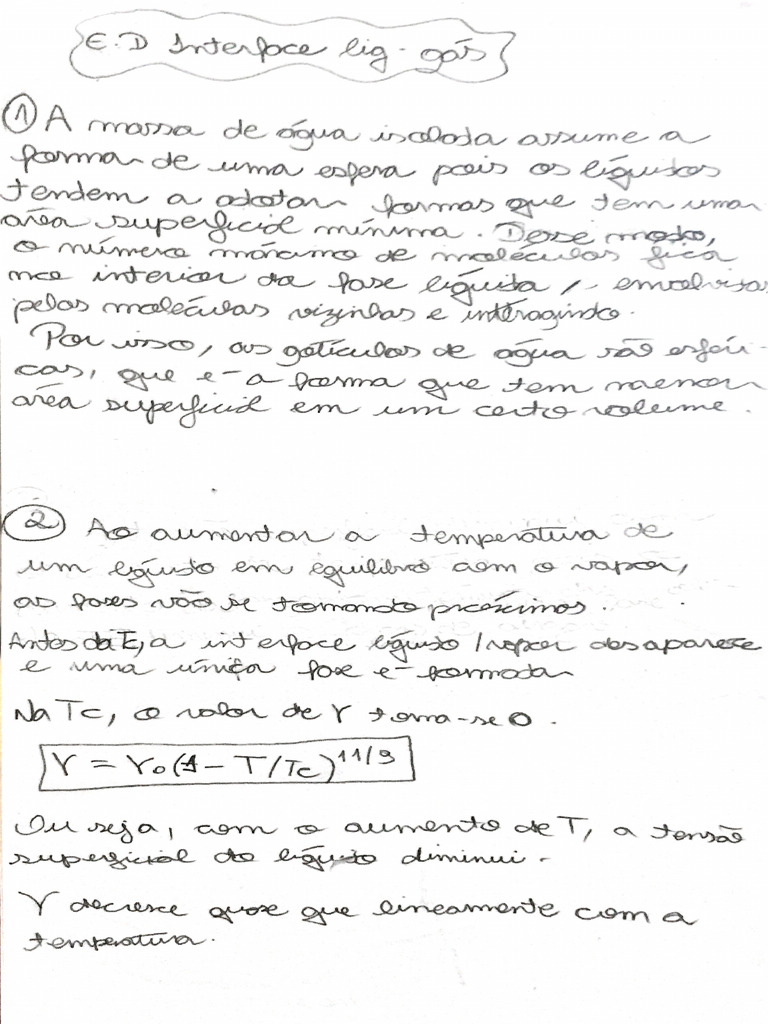 E.D Interface liq-gás
① A massa de água isolada assume a
forma de uma esfera pois os líquidos
tendem a adotar formas que tem uma
área superficial mínima. Desse modo,
o número máximo de moléculas fica
no interior da fase líquida, envolvidas
pelas moléculas vizinhas e interagindo.
Por isso, as gotículas de água são esféri-
cas, que é a forma que tem menor
área superficial em um certo volume.
② Ao aumentar a temperatura de
um líquido em equilíbrio com o vapor,
as fases vão se tornando próximas.
Antes da Tc, a interface líquido/vapor desaparece
e uma única fase é formada
Na Tc, o valor de γ torna-se 0.
γ = γ₀(1 - T/Tc)^11/9
Ou seja, com o aumento de T, a tensão
superficial do líquido diminui.
γ decresce quase que linearmente com a
temperatura.